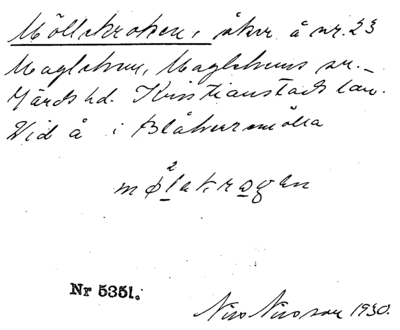 Möllekroken, åker å nr. 23
Maglehem, Maglehems sn.
Gärds hd. Kristianstads län.
Vid å i Blåherremölla
2
møłlakrogen
Nr 5351.
Nils Nilsson 1930.